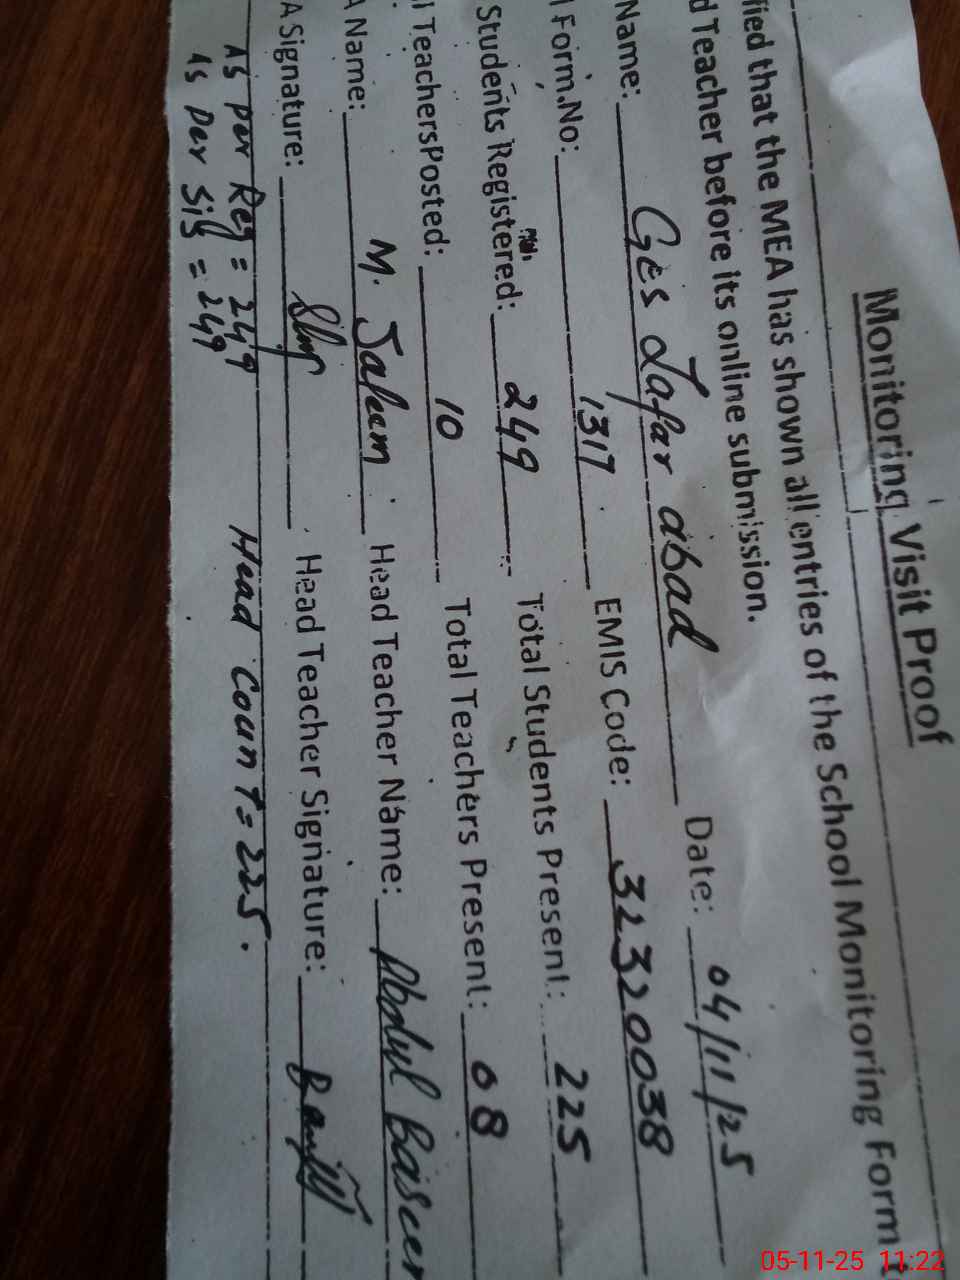 Monitoring Visit Proof
fied that the MEA has shown all entries of the School Monitoring Form t
d Teacher before its online submission.
Name: GES Zafar abad Date: 04/11/25
l Form.No: 1317 EMIS Code: 32320038
Students Registered: 249 Total Students Present: 225
l TeachersPosted: 10 Total Teachers Present: 08
A Name: M. Saleem Head Teacher Name: Abdul Baseer
A Signature: Head Teacher Signature:
As per Reg = 249 Head Count = 225.
As per Sis = 249
05-11-25 11:22